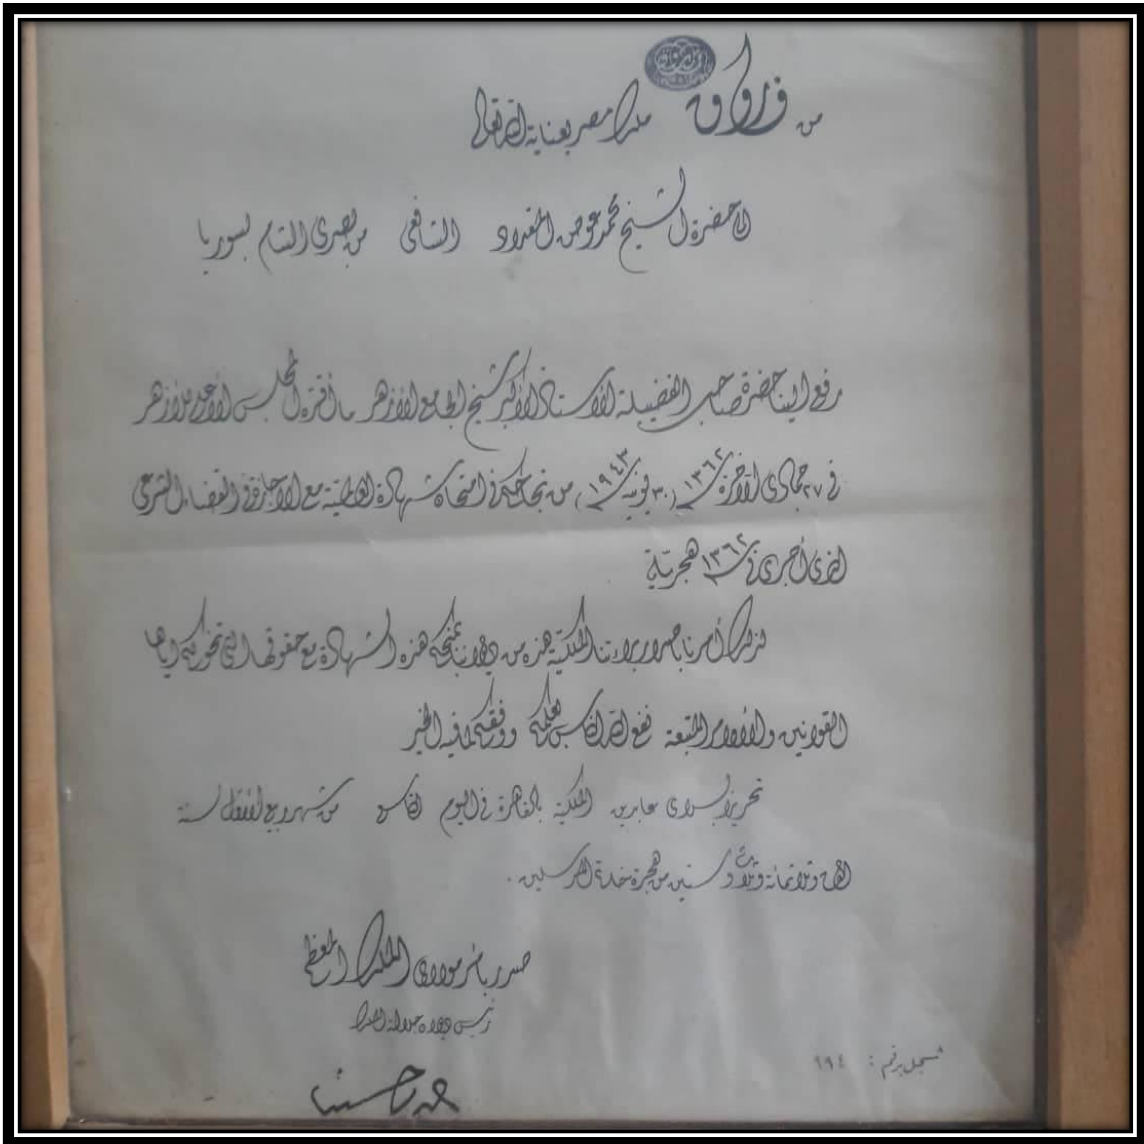 من فاروق ملك مصر بعناية الله تعالى
إلى حضرة الشيخ محمد عوض المقداد الشافعى من بصرى الشام بسوريا
رفع إلينا حضرة صاحب الفضيلة الأستاذ الأكبر شيخ الجامع الأزهر ما أقره المجلس الأعلى للأزهر
فى ٢٧ جمادى الآخرة سنة ١٣٦٢ (٣٠ يونيه سنة ١٩٤٣) من نجاحكم فى امتحان شهادة العالمية مع الإجازة فى القضاء الشرعى
الذى أجرى فى سنة ١٣٦٢ هجرية
لذلك أمرنا بإصدار براءتنا الملكية هذه من ديواننا بمنحكم هذه الشهادة مع حقوقها التى تخولكم إياها
القوانين والأوامر المتبعة نفع الله الناس بعلمكم ووفقكم لما فيه الخير
تحريرا بسراى عابدين الملكية بالقاهرة فى اليوم الخامس من شهر ربيع الأول سنة
ألف وثلاثمائة وثلاث وستين من هجرة خاتم المرسلين .
صدر بأمر مولاى الملك المعظم
رئيس ديوان جلالة الملك
مسجل برقم : ٦٩٤